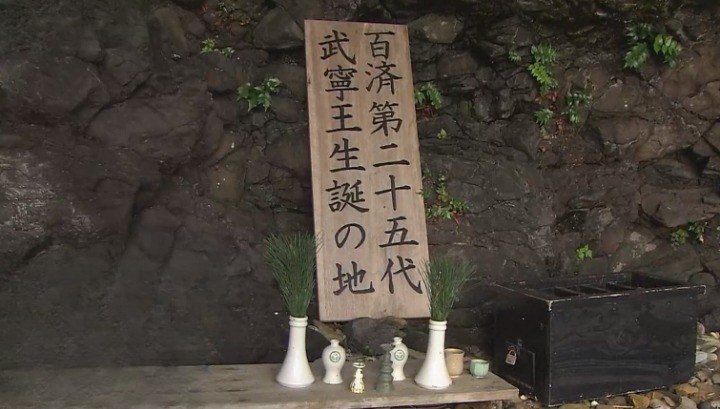 百済第二十五代
武寧王生誕の地